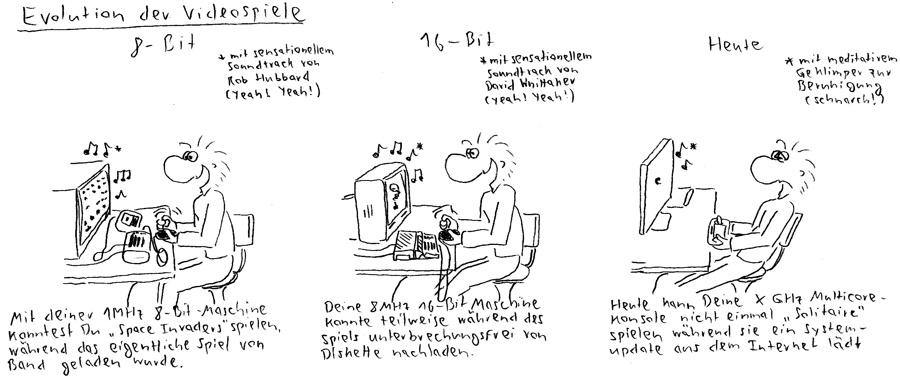 Evolution der Videospiele
8-Bit
* mit sensationellem
Soundtrack von
Rob Hubbard
(Yeah! Yeah!)
Mit deiner 1MHz 8-Bit-Maschine
konntest Du „Space Invaders" spielen,
während das eigentliche Spiel von
Band geladen wurde.
16-Bit
* mit sensationellem
Soundtrack von
David Whittaker
(Yeah! Yeah!)
Deine 8MHz 16-Bit Maschine
konnte teilweise während des
Spiels unterbrechungsfrei von
Diskette nachladen.
Heute
* mit meditativem
Geklimper zur
Beruhigung
(schnarch!)
Heute kann Deine X GHz Multicore-
Konsole nicht einmal „Solitaire"
spielen während sie ein System-
update aus dem Internet lädt